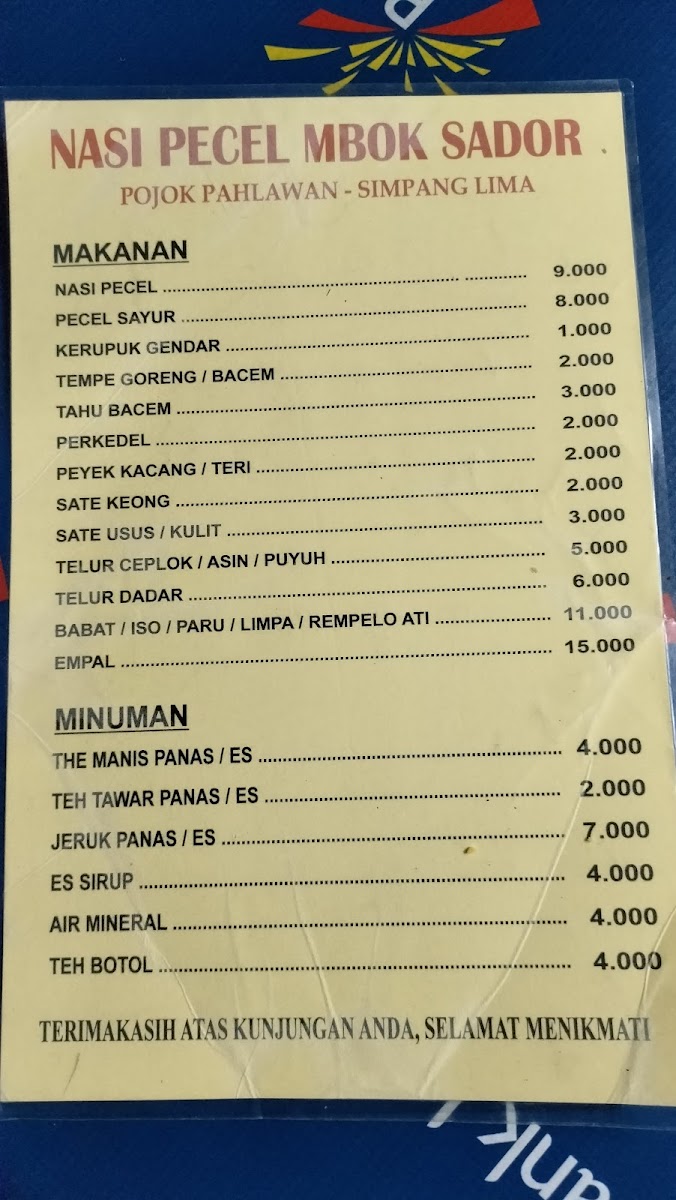 NASI PECEL MBOK SADOR
POJOK PAHLAWAN - SIMPANG LIMA
MAKANAN
NASI PECEL ........ 9.000
PECEL SAYUR ........ 8.000
KERUPUK GENDAR ........ 1.000
TEMPE GORENG / BACEM ........ 2.000
TAHU BACEM ........ 3.000
PERKEDEL ........ 2.000
PEYEK KACANG / TERI ........ 2.000
SATE KEONG ........ 2.000
SATE USUS / KULIT ........ 3.000
TELUR CEPLOK / ASIN / PUYUH ........ 5.000
TELUR DADAR ........ 6.000
BABAT / ISO / PARU / LIMPA / REMPELO ATI ........ 11.000
EMPAL ........ 15.000
MINUMAN
THE MANIS PANAS / ES ........ 4.000
TEH TAWAR PANAS / ES ........ 2.000
JERUK PANAS / ES ........ 7.000
ES SIRUP ........ 4.000
AIR MINERAL ........ 4.000
TEH BOTOL ........ 4.000
TERIMAKASIH ATAS KUNJUNGAN ANDA, SELAMAT MENIKMATI